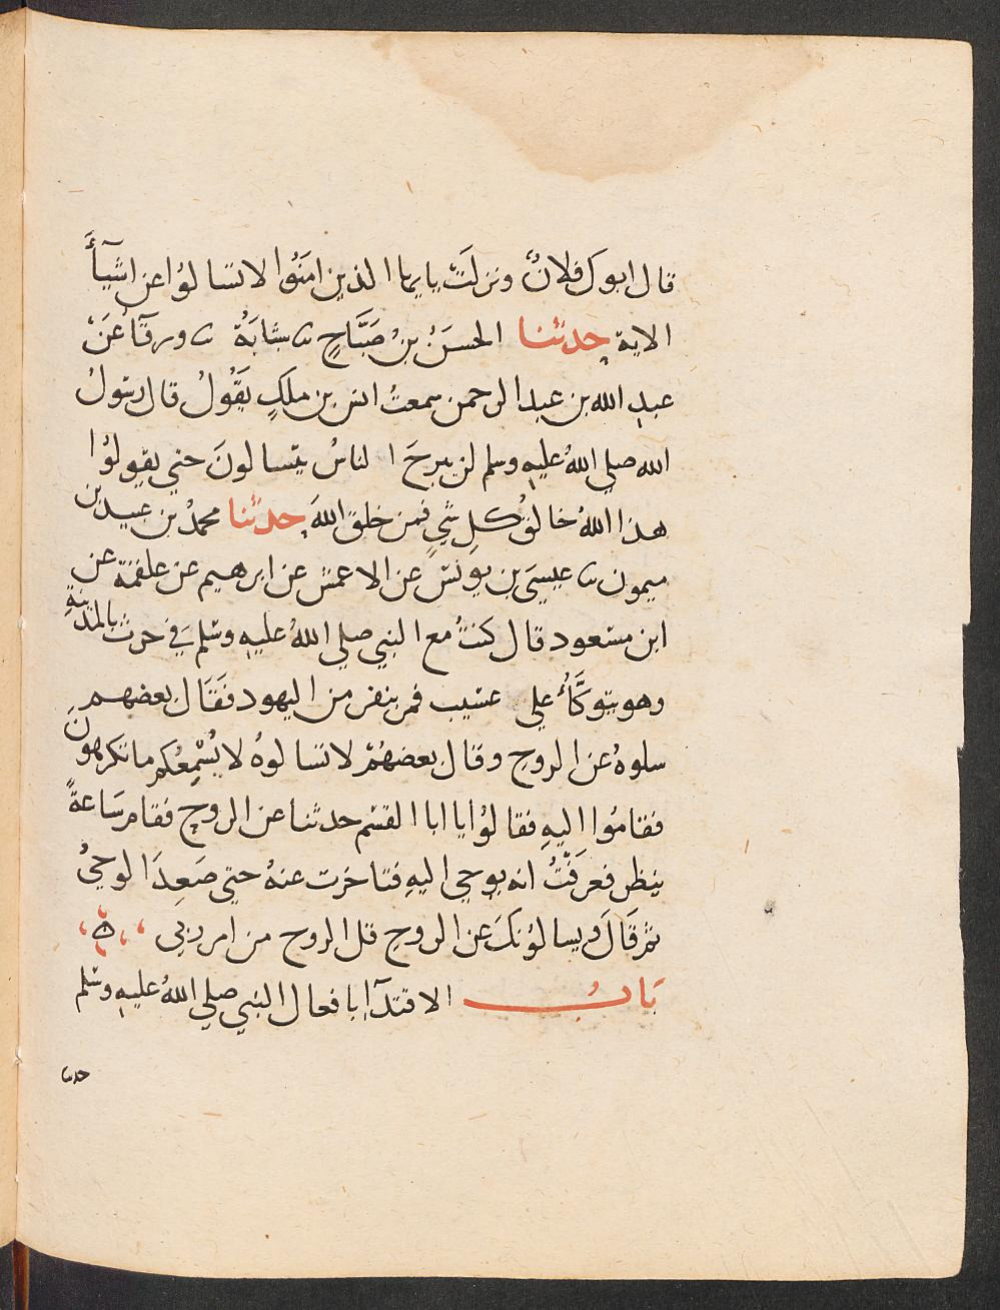 قال ابوك فلانٌ ونزلَت يايها الذين امَنُوا لا تسالوُا عن اشيآءَ
الاية حدثنا الحسَنُ بنُ صَبَّاحٍ ثنا شبَابَةُ ثنا ورقآءُ عَن
عبدِ الله بن عبد الرحمن سمعتُ انس بن ملكٍ يَقُولُ قال رسُولُ
الله صلي اللهُ عليهِ وسلم لن يبرحَ الناسُ يتسالونَ حتي يقولوُا
هذا اللهُ خالقُ كلِ شيٍ فمن خلق اللهَ حدثنا محمدُ بن عبيد بن
ميمون ثنا عيسيَ بن يونس عن الاعمش عن ابرهيم عن علقمة عن
ابن مسعود قال كنتُ مع النبي صلي اللهُ عليهِ وسلم في حرث بالمدينةِ
وهو يتوكَّأُ علي عسيب فمر بنفر من اليهود فَقَال بعضهم
سلوهُ عن الروح وقال بعضهُمْ لا تسالوهُ لا يُسْمِعُكم ما تكرهونَ
فقامُوا اليهِ فقالوُا يا ابا القسِم حدثنا عن الروحِ فقام سَاعةً
ينظر فعرَفْتُ انه يوحي اليهِ فتاخرت عنهُ حتي صَعِدَ الوحيُ
ثم قَالَ ويسالوُنكَ عن الروحِ قل الروح من امر ربي ه
بَابُ الاقتدآءِ بافعال النبي صلي اللهُ عليهِ وسلم
حدثنا